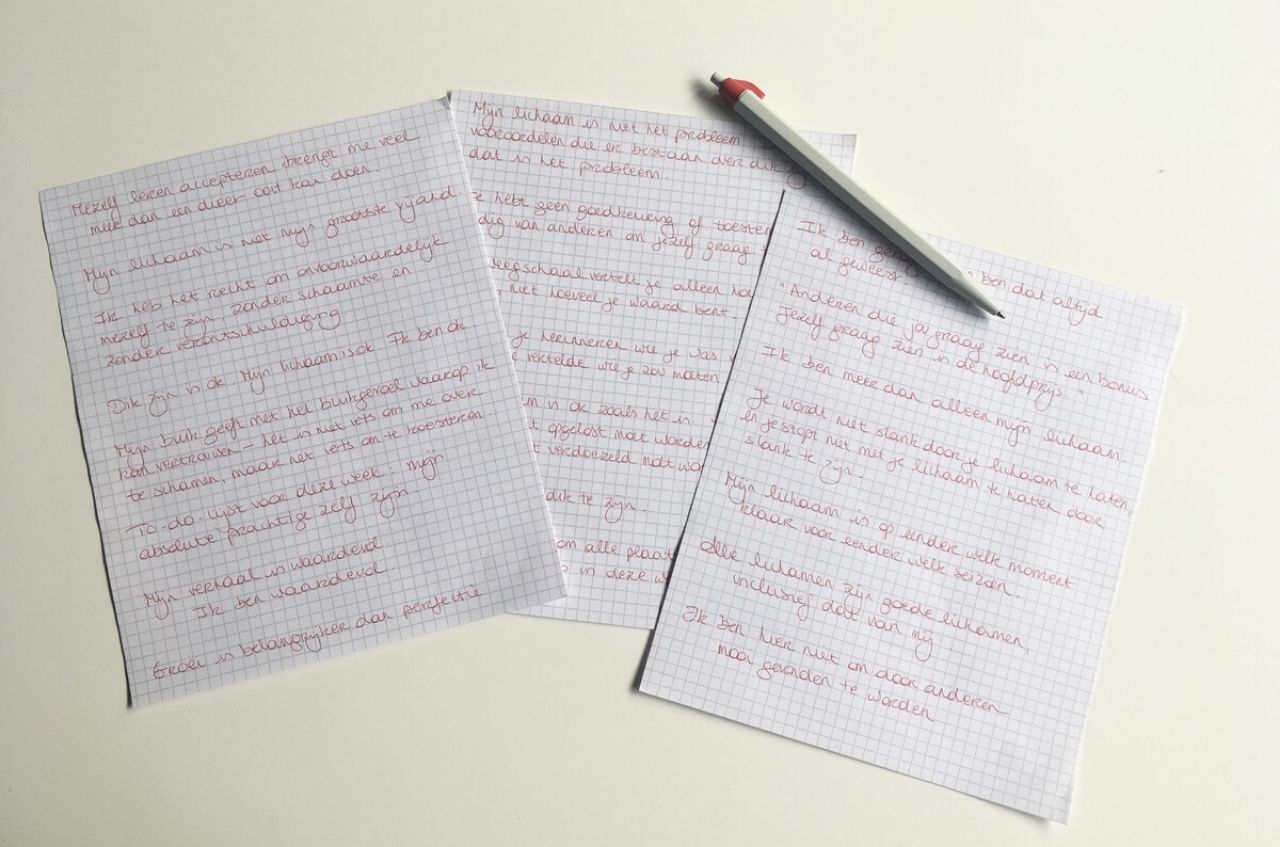 Mezelf leren accepteren brengt me veel
meer dan een dieet ooit kan doen.
Mijn lichaam is niet mijn grootste vijand
Ik heb het recht om onvoorwaardelijk
mezelf te zijn zonder schaamte en
zonder verontschuldiging
Dik zijn is ok. Mijn lichaam is ok. Ik ben ok
Mijn buik geeft met het buikgevoel waarop ik
kan vertrouwen – het is niet iets om me over
te schamen, maar net iets om te koesteren
To-do-lijst voor deze week: mijn
absolute prachtige zelf zijn.
Mijn verhaal is waardevol
Ik ben waardevol.
Groei is belangrijker dan perfectie
Mijn lichaam is niet het probleem
vooroordelen die er bestaan over dik
dat is het probleem.
hebt geen goedkeuring of
van anderen om jezelf graag
vertelt je alleen
niet hoeveel je waard bent.
je herinneren wie je was
vertelde wie je zou moeten
is ok zoals het is.
opgelost moet worden
verdoezeld moet
dik te zijn.
om alle
in deze
Ik ben ben dat altijd
al geweest.
"Anderen die jou graag zien is een bonus
Jezelf graag zien is de hoofdprijs."
Ik ben meer dan alleen mijn lichaam.
Je wordt niet slank door je lichaam te haten
en je stopt niet met je lichaam te haten door
slank te zijn.
Mijn lichaam is op eender welk moment
klaar voor eender welk seizoen.
Alle lichamen zijn goede lichamen,
inclusief dat van mij.
Ik ben hier niet om door anderen
mooi gevonden te worden